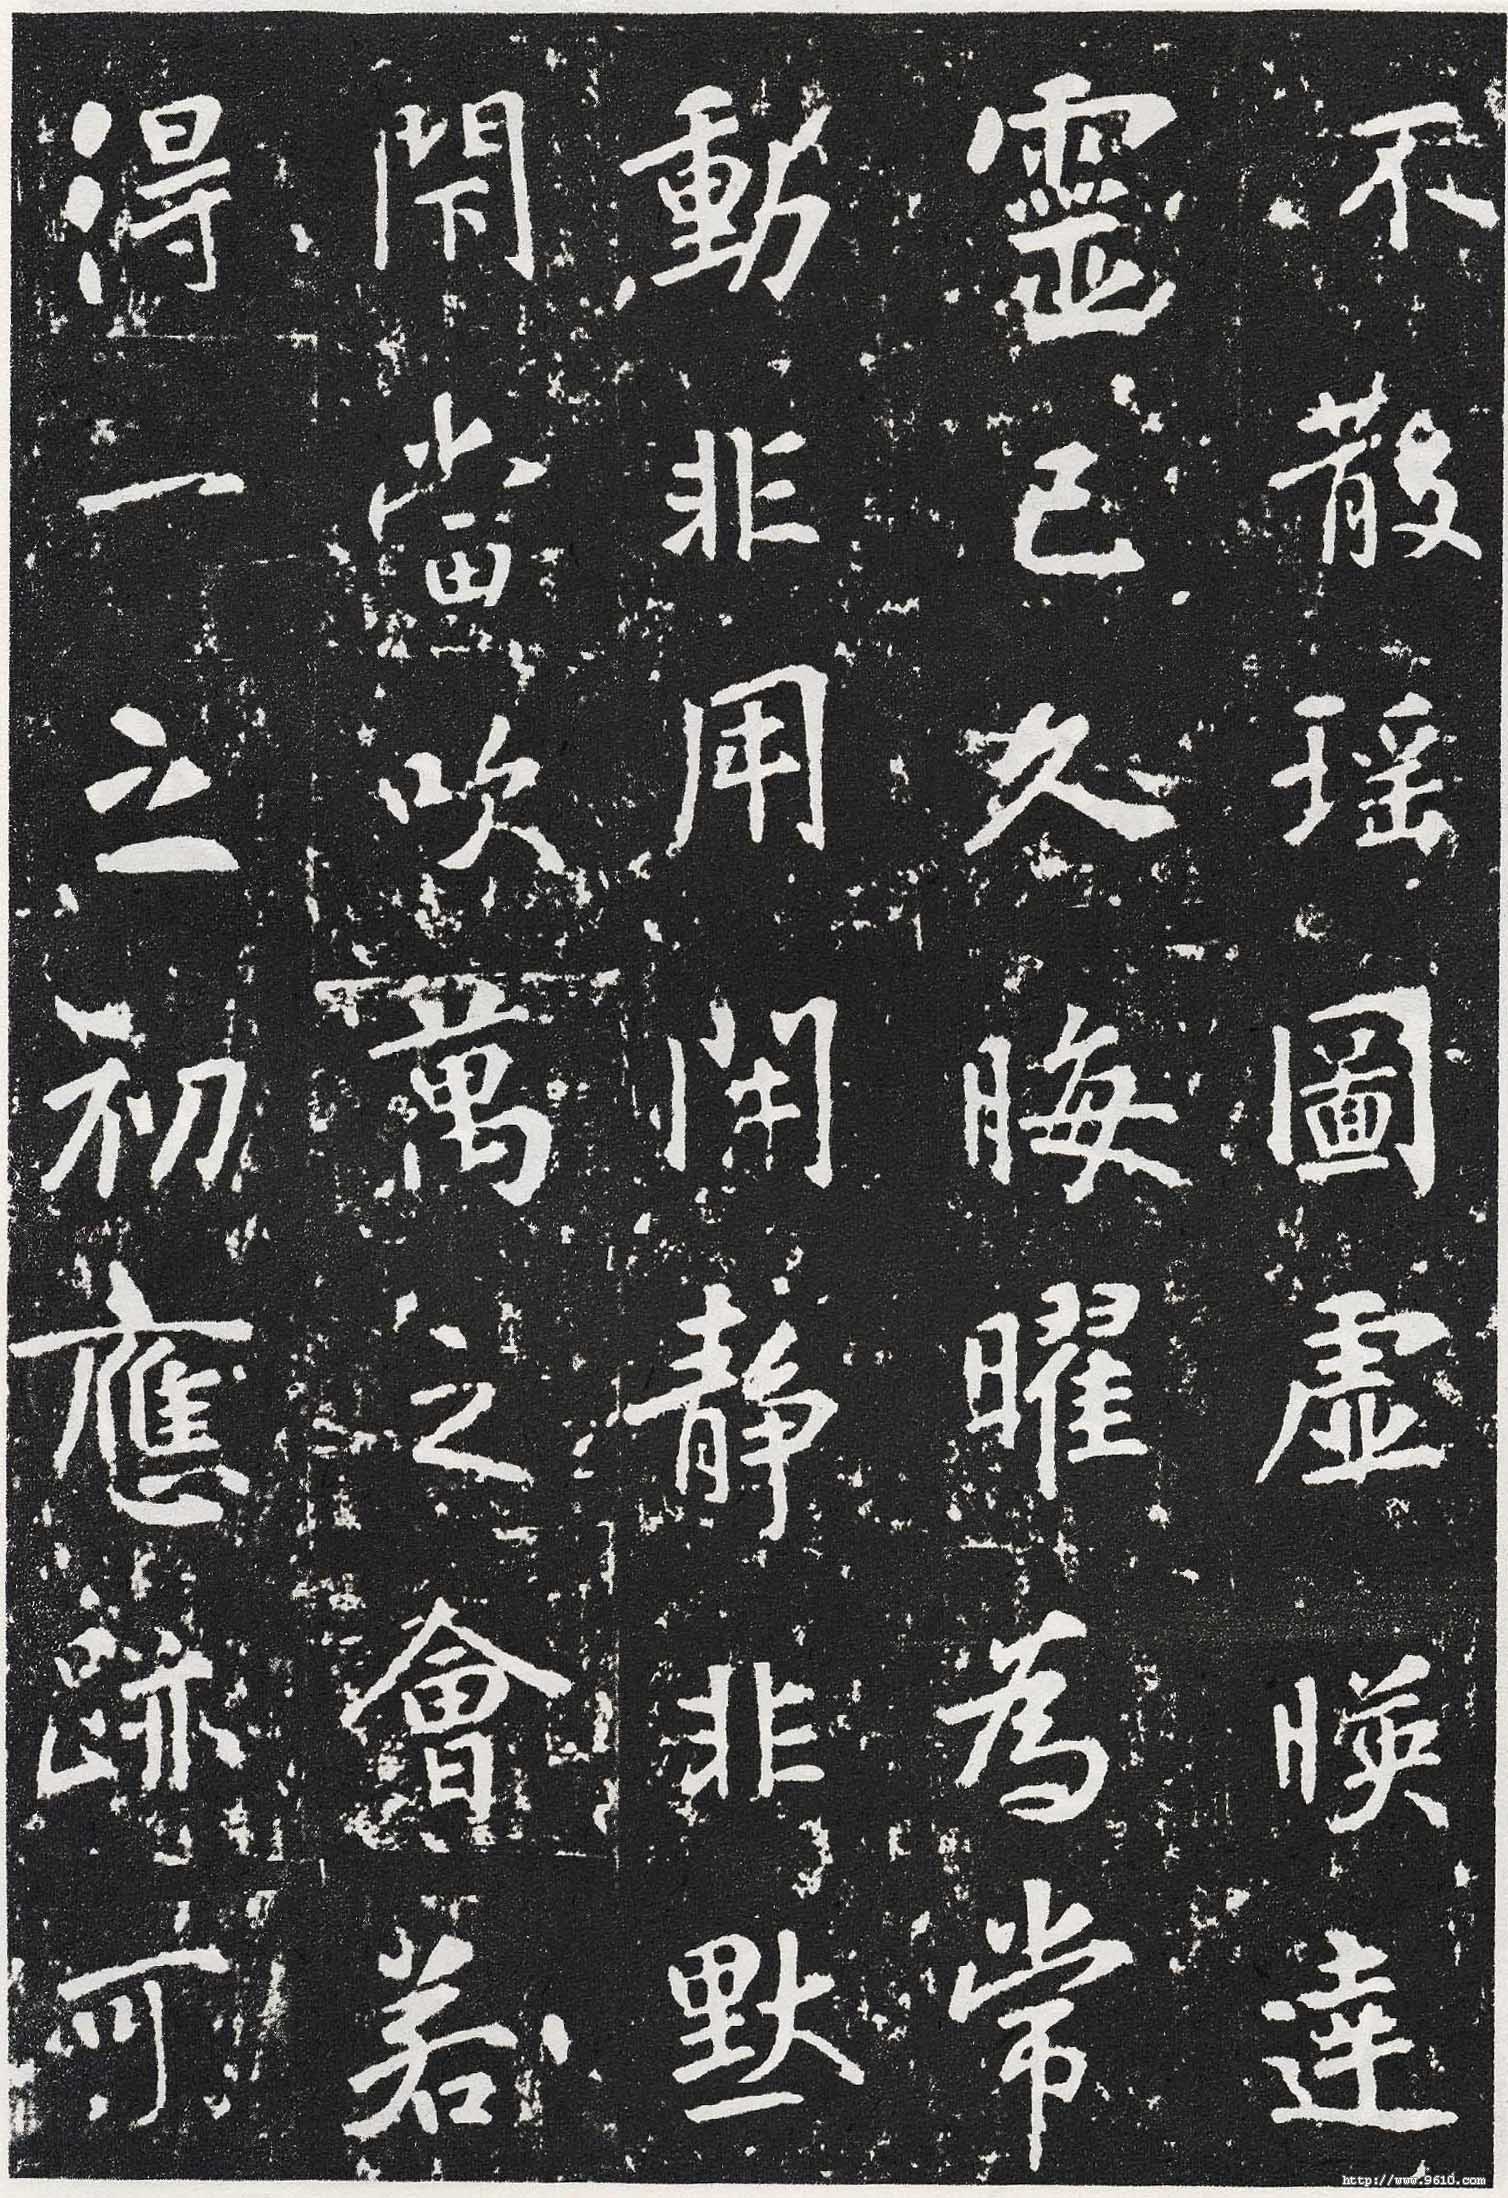 不散瑶圖虚暎達
靈已久晦曜為常
動非用閑静非默
閇當吹萬之會若
得一之初應跡可
http://www.9610.com